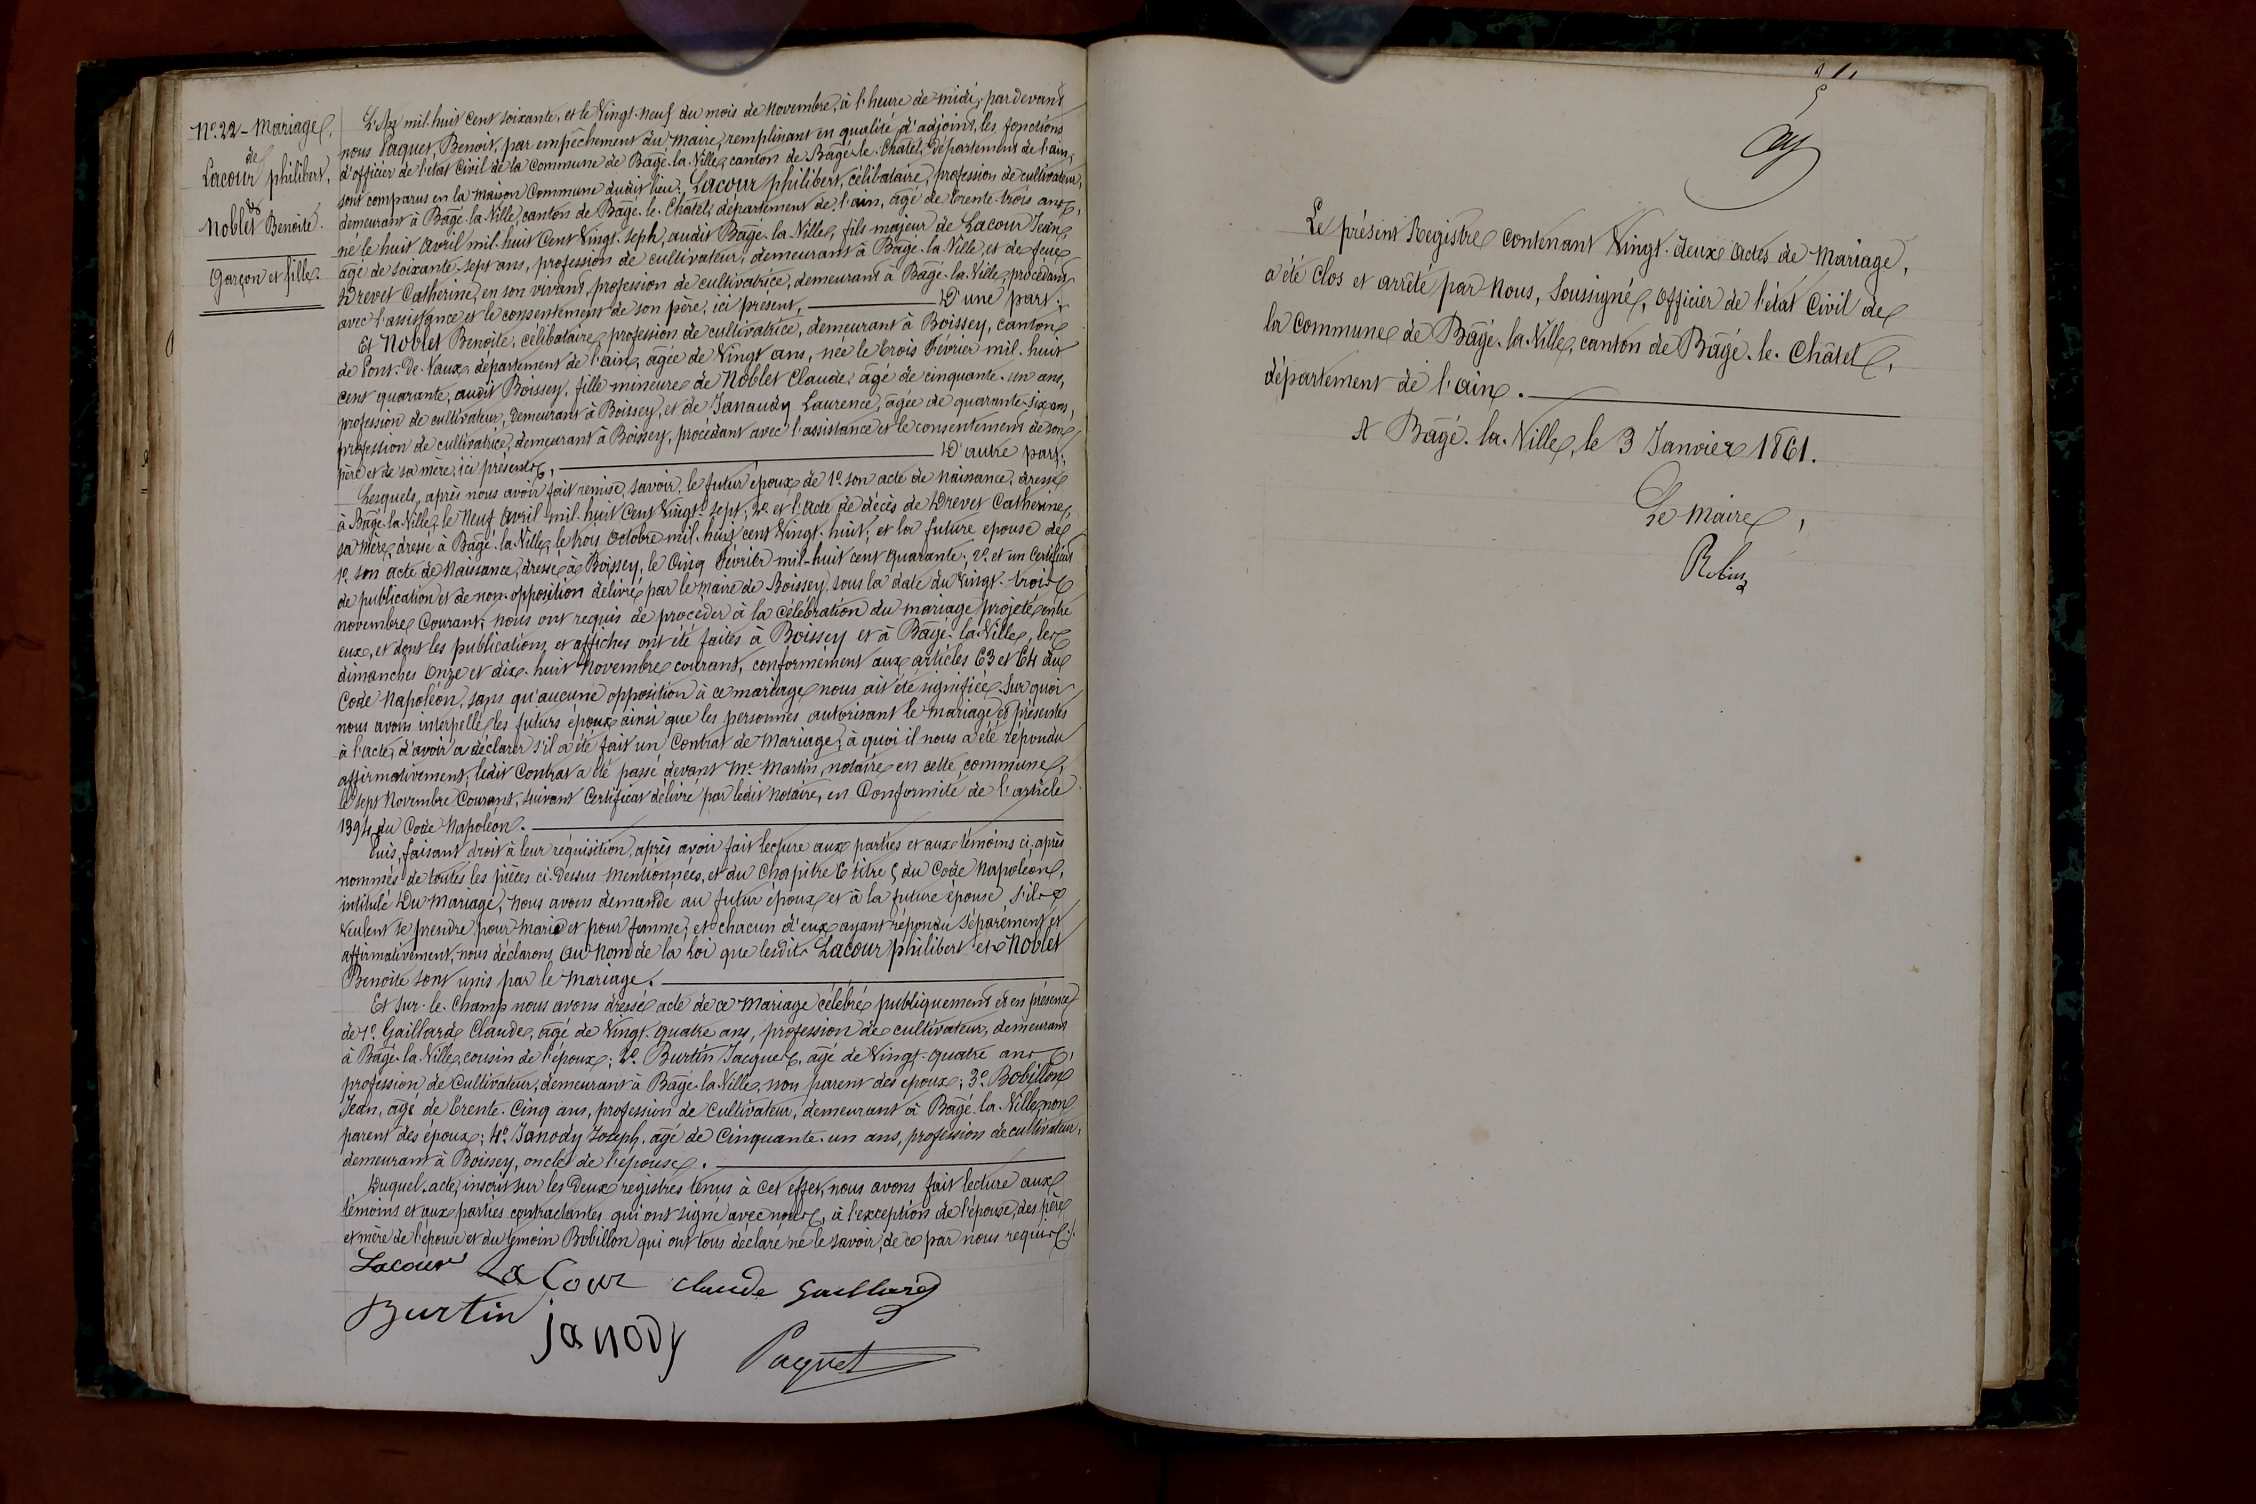 N.º 22 - Mariage,
de
Lacour philibert,
&
Noblet Benoite.
Garçon et fille.
L'An mil-huit cent soixante, et le Vingt-neuf du mois de novembre, à l'heure de midi, pardevant
nous Paquet, Benoit, par empêchement du maire, remplissant en qualité d'adjoint, les fonctions
d'officier de l'état Civil de la commune de Bâgé-la-Ville, canton de Bâgé-le-Châtel, département de l'ain,
sont comparus en la maison Commune dudit lieu: Lacour philibert, célibataire, profession de cultivateur,
demeurant à Bâgé-la-Ville, canton de Bâgé-le-Châtel, département de l'ain, âgé de trente-trois ans,
né le huit avril mil-huit Cent Vingt-sept, audit Bâgé-la-Ville, fils majeur de Lacour Jean,
âgé de soixante-sept ans, profession de cultivateur, demeurant à Bâgé-la-Ville, et de feue
Drevet Catherine, en son vivant, profession de cultivatrice, demeurant à Bâgé-la-Ville, procédant
avec l'assistance et le consentement de son père, ici présent, D'une part;
Et Noblet Benoite, célibataire, profession de cultivatrice, demeurant à Boissey, canton
de Pont-De-Vaux, département de l'ain, âgée de Vingt ans, née le trois Février mil-huit
cent quarante, audit Boissey, fille mineure de Noblet Claude, âgé de cinquante-un ans,
profession de cultivateur, demeurant à Boissey, et de Janaudy Laurence, âgée de quarante-six ans,
profession de cultivatrice, demeurant à Boissey, procédant avec l'assistance et le consentement de son
père et de sa mère, ici présents, D'autre part;
Lesquels, après nous avoir fait remise, savoir, le futur époux de 1º son acte de naissance, dressé
à Bâgé-la-Ville, le Neuf avril mil-huit Cent Vingt-sept; 2º et l'acte de décès de Drevet Catherine,
sa mère, dressé à Bâgé-la-Ville, le trois octobre mil-huit cent Vingt-huit; et la future épouse de
1º son acte de Naissance, dressé à Boissey, le Cinq Février mil-huit cent quarante; 2º et un Certificat
de publication et de non-opposition délivré par le maire de Boissey, sous la date du Vingt-trois
novembre Courant; nous ont requis de procéder à la célébration du mariage projeté entre
eux, et dont les publications et affiches ont été faites à Boissey et à Bâgé-la-Ville, les
dimanches onze et dix-huit Novembre courant, conformément aux articles 63 et 64 du
Code Napoléon, sans qu'aucune opposition à ce mariage nous ait été signifiée. Sur quoi
nous avons interpellé les futurs époux ainsi que les personnes autorisant le mariage et présentes
à l'acte, d'avoir à déclarer s'il a été fait un Contrat de Mariage, à quoi il nous a été répondu
affirmativement, ledit Contrat a été passé devant Me Martin, notaire en cette commune,
le sept Novembre Courant, suivant Certificat délivré par ledit notaire, en Conformité de l'article
1394 du Code Napoléon.
Puis, faisant droit à leur réquisition, après avoir fait lecture aux parties et aux témoins ci-après
nommés de toutes les pièces ci-dessus mentionnées, et du Chapitre 6 titre 5 du Code Napoléon,
intitulé Du Mariage, nous avons demandé au futur époux et à la future épouse s'ils
veulent se prendre pour mari et pour femme; et chacun d'eux ayant répondu séparément et
affirmativement, nous déclarons, au Nom de la Loi que lesdits Lacour philibert et Noblet
Benoite sont unis par le Mariage.
Et sur-le-champ nous avons dressé acte de ce Mariage célébré publiquement et en présence
de 1º Gaillard Claude, âgé de Vingt-quatre ans, profession de cultivateur, demeurant
à Bâgé-la-Ville, cousin de l'époux; 2º Burtin Jacques, âgé de Vingt-quatre ans,
profession de Cultivateur, demeurant à Bâgé-la-Ville, non parent des époux; 3º Bobillon
Jean, âgé de trente-cinq ans, profession de Cultivateur, demeurant à Bâgé-la-Ville, non
parent des époux; 4º Janody Joseph, âgé de Cinquante-un ans, profession de cultivateur,
demeurant à Boissey, oncle de l'épouse.
Duquel acte, inscrit sur les Deux registres tenus à cet effet, nous avons fait lecture aux
témoins et aux parties contractantes qui ont signé avec nous, à l'exception de l'épouse, des père
et mère de l'épouse et du témoin Bobillon qui ont tous déclaré ne le savoir, de ce par nous requis.
Lacour La Cour Claude Gaillard
Burtin janody
Paquet
Le présent Registre contenant Vingt-deux Actes de Mariage,
a été Clos et arrêté par Nous, soussigné, officier de l'état Civil de
la Commune de Bâgé-la-Ville, canton de Bâgé-le-Châtel,
département de l'ain.
A Bâgé-la-Ville, le 3 Janvier 1861.
Le Maire,
Robin